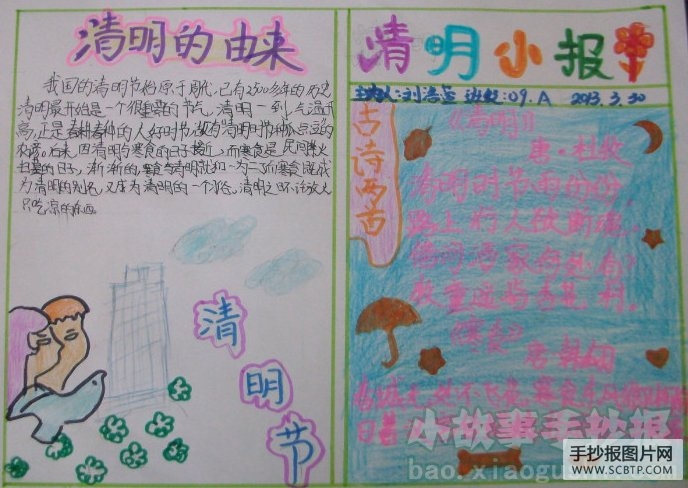 清明的由来
我国的清明节始原于周代,已有2500多年的历史
清明最开始是一个很重要的节气,清明一到,气温升
高,正是春耕春种的大好时节,故有清明时节种瓜点豆的
农谚。后来,因清明与寒食的日子接近,而寒食是民间禁火
扫墓的日子,渐渐的,寒食与清明就和一为了,而寒食既成
为清明的别名,又成为清明的一个习俗,清明之日不动烟火
只吃凉的东西
清
明
节
清明小报
刘浩 班级:09.A 2013.3.30
古诗两首
《清明》
唐·杜牧
清明时节雨纷纷,
路上行人欲断魂。
借问酒家何处有
牧童遥指杏花村。
《寒食》
唐 韩翃
春城无处不飞花,寒食东风御柳斜
日暮
小故事手抄报
bao.xiaogu
手抄报图片网
WWW.SCBTP.COM